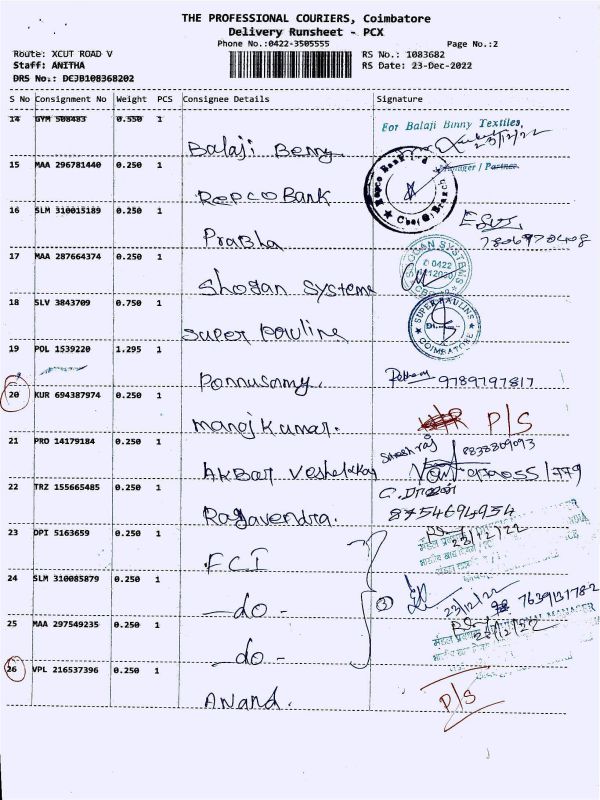 THE PROFESSIONAL COURIERS, Coimbatore
Delivery Runsheet - PCX
Phone No.:0422-3505555 Page No.:2
Route: XCUT ROAD V RS No.: 1083682
Staff: ANITHA RS Date: 23-Dec-2022
DRS No.: DCJB108368202
S No Consignment No Weight PCS Consignee Details Signature
14 GYM 508483 0.550 1
For Balaji Binny Textiles,
23/12/22
Balaji Benny
Manager / Partner
15 MAA 296781440 0.250 1
Repco Bank Ltd
Cbe(G)Branch
REPCO BANK
16 SLM 310015189 0.250 1
Prabha
17 MAA 287664374 0.250 1
SHOGAN SYSTEMS
0422
Shogan Systems
18 SLV 3843709 0.750 1
SUPER PAULINE
COIMBATORE
Super Pauline
19 POL 1539220 1.295 1
Ponnusamy. 9789797817
20 KUR 694387974 0.250 1
Manoj Kumar. P/S
21 PRO 14179184 0.250 1
8838309093
AKBar
22 TRZ 155665485 0.250 1
Ragavendra. 8754694954
23 DPI 5163659 0.250 1
23/12/22
FCI
24 SLM 310085879 0.250 1
-do- 23/12/22 7639131782
25 MAA 297549235 0.250 1
MANAGER
23/12/22
-do-
26 VPL 216537396 0.250 1
Anand. P/S